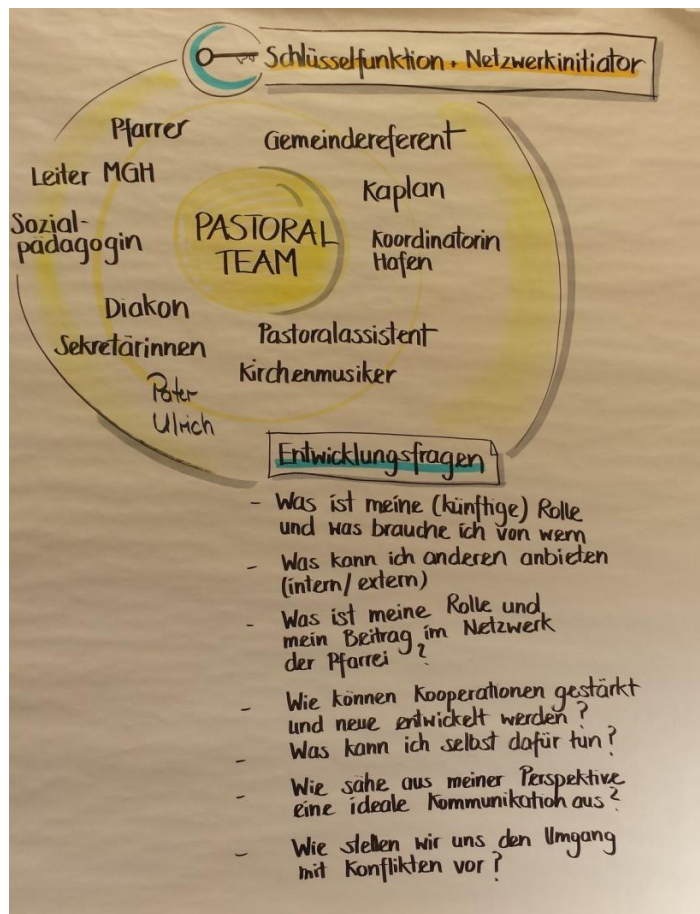 Schlüsselfunktion + Netzwerkinitiator
Pfarrer
Gemeindereferent
Leiter MGH
Kaplan
Sozial-
pädagogin
PASTORAL
TEAM
Koordinatorin
Hafen
Diakon
Sekretärinnen
Pastoralassistent
Kirchenmusiker
Pater
Ulrich
Entwicklungsfragen
- Was ist meine (künftige) Rolle
und was brauche ich von wem
- Was kann ich anderen anbieten
(intern/extern)
- Was ist meine Rolle und
mein Beitrag im Netzwerk
der Pfarrei?
- Wie können Kooperationen gestärkt
und neue entwickelt werden?
- Was kann ich selbst dafür tun?
- Wie sähe aus meiner Perspektive
eine ideale Kommunikation aus?
- Wie stellen wir uns den Umgang
mit Konflikten vor?